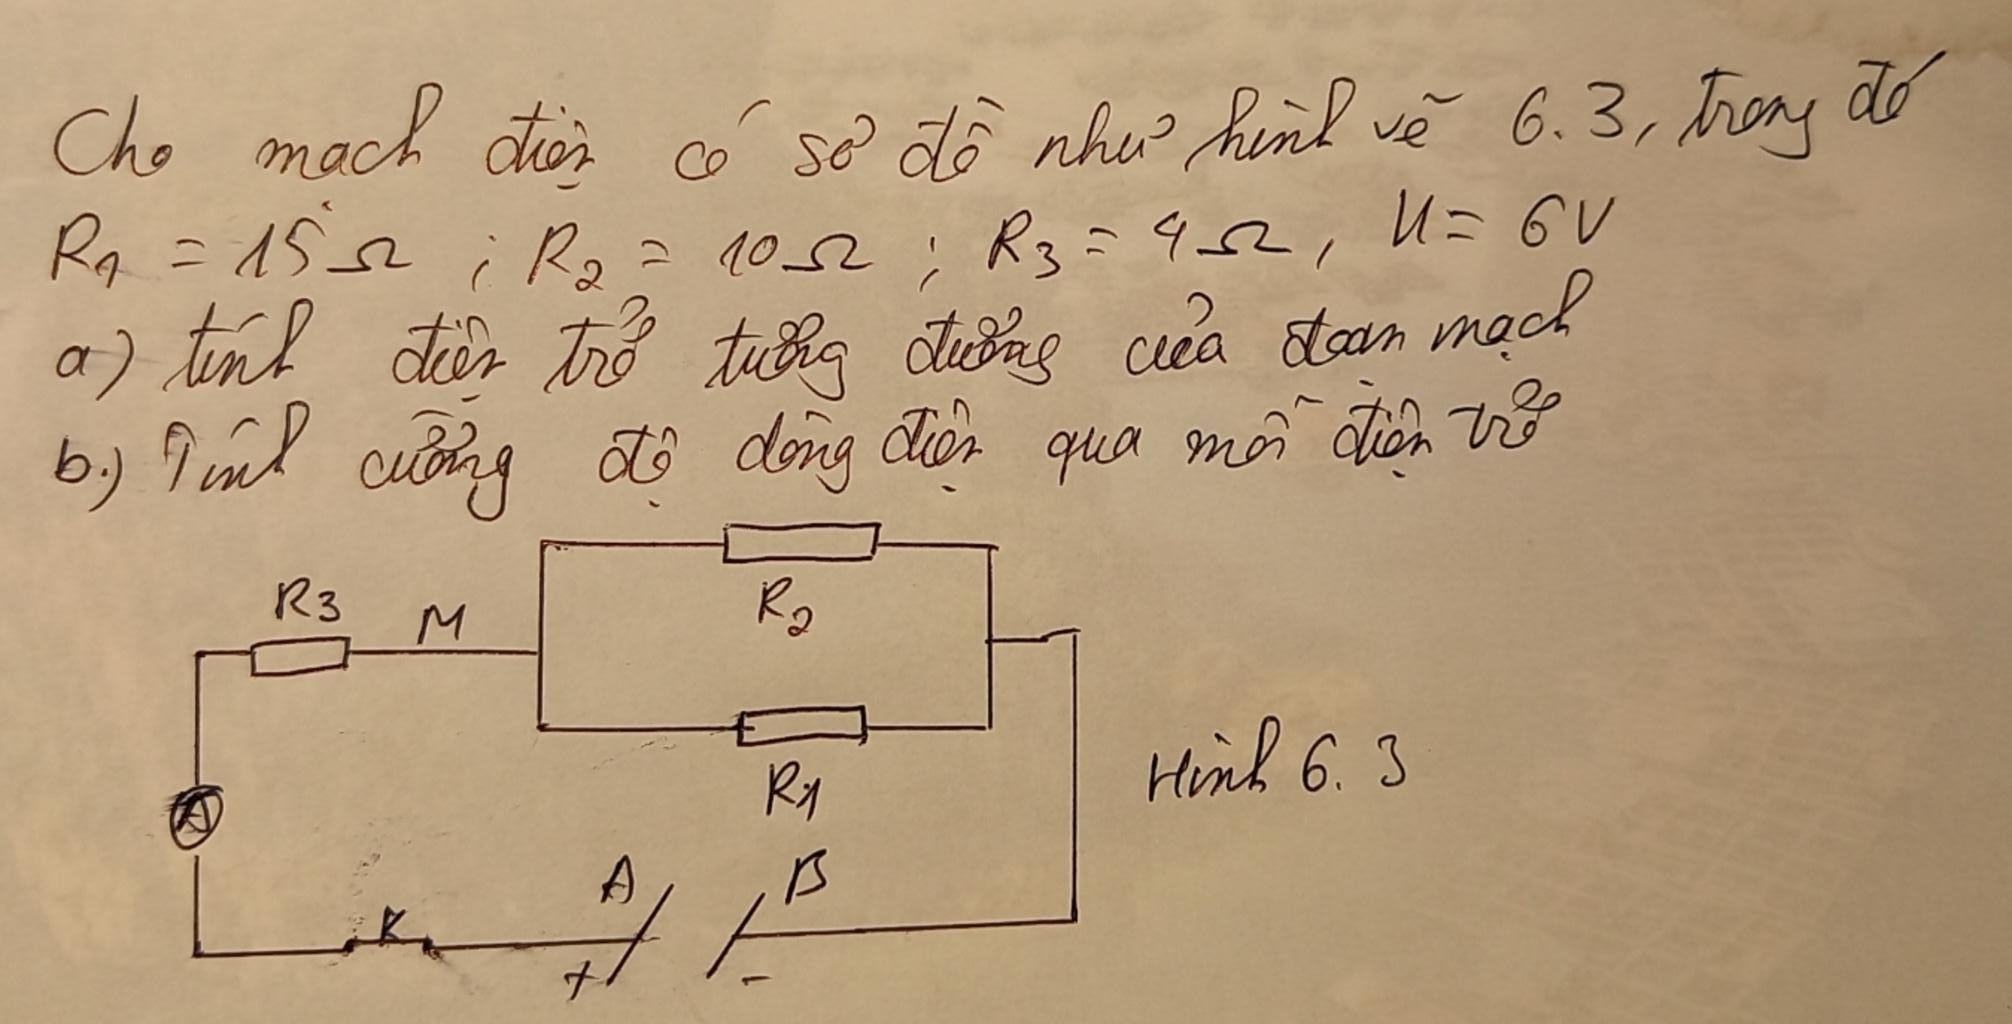 Cho mạch điện có sơ đồ như hình vẽ 6.3, trong đó
R1 = 15Ω ; R2 = 10Ω ; R3 = 4Ω, U = 6V
a) tính điện trở tương đương của đoạn mạch
b.) Tính cường độ dòng điện qua mỗi điện trở
R3 M R2
R1
Hình 6.3
A
A B
K
+ -